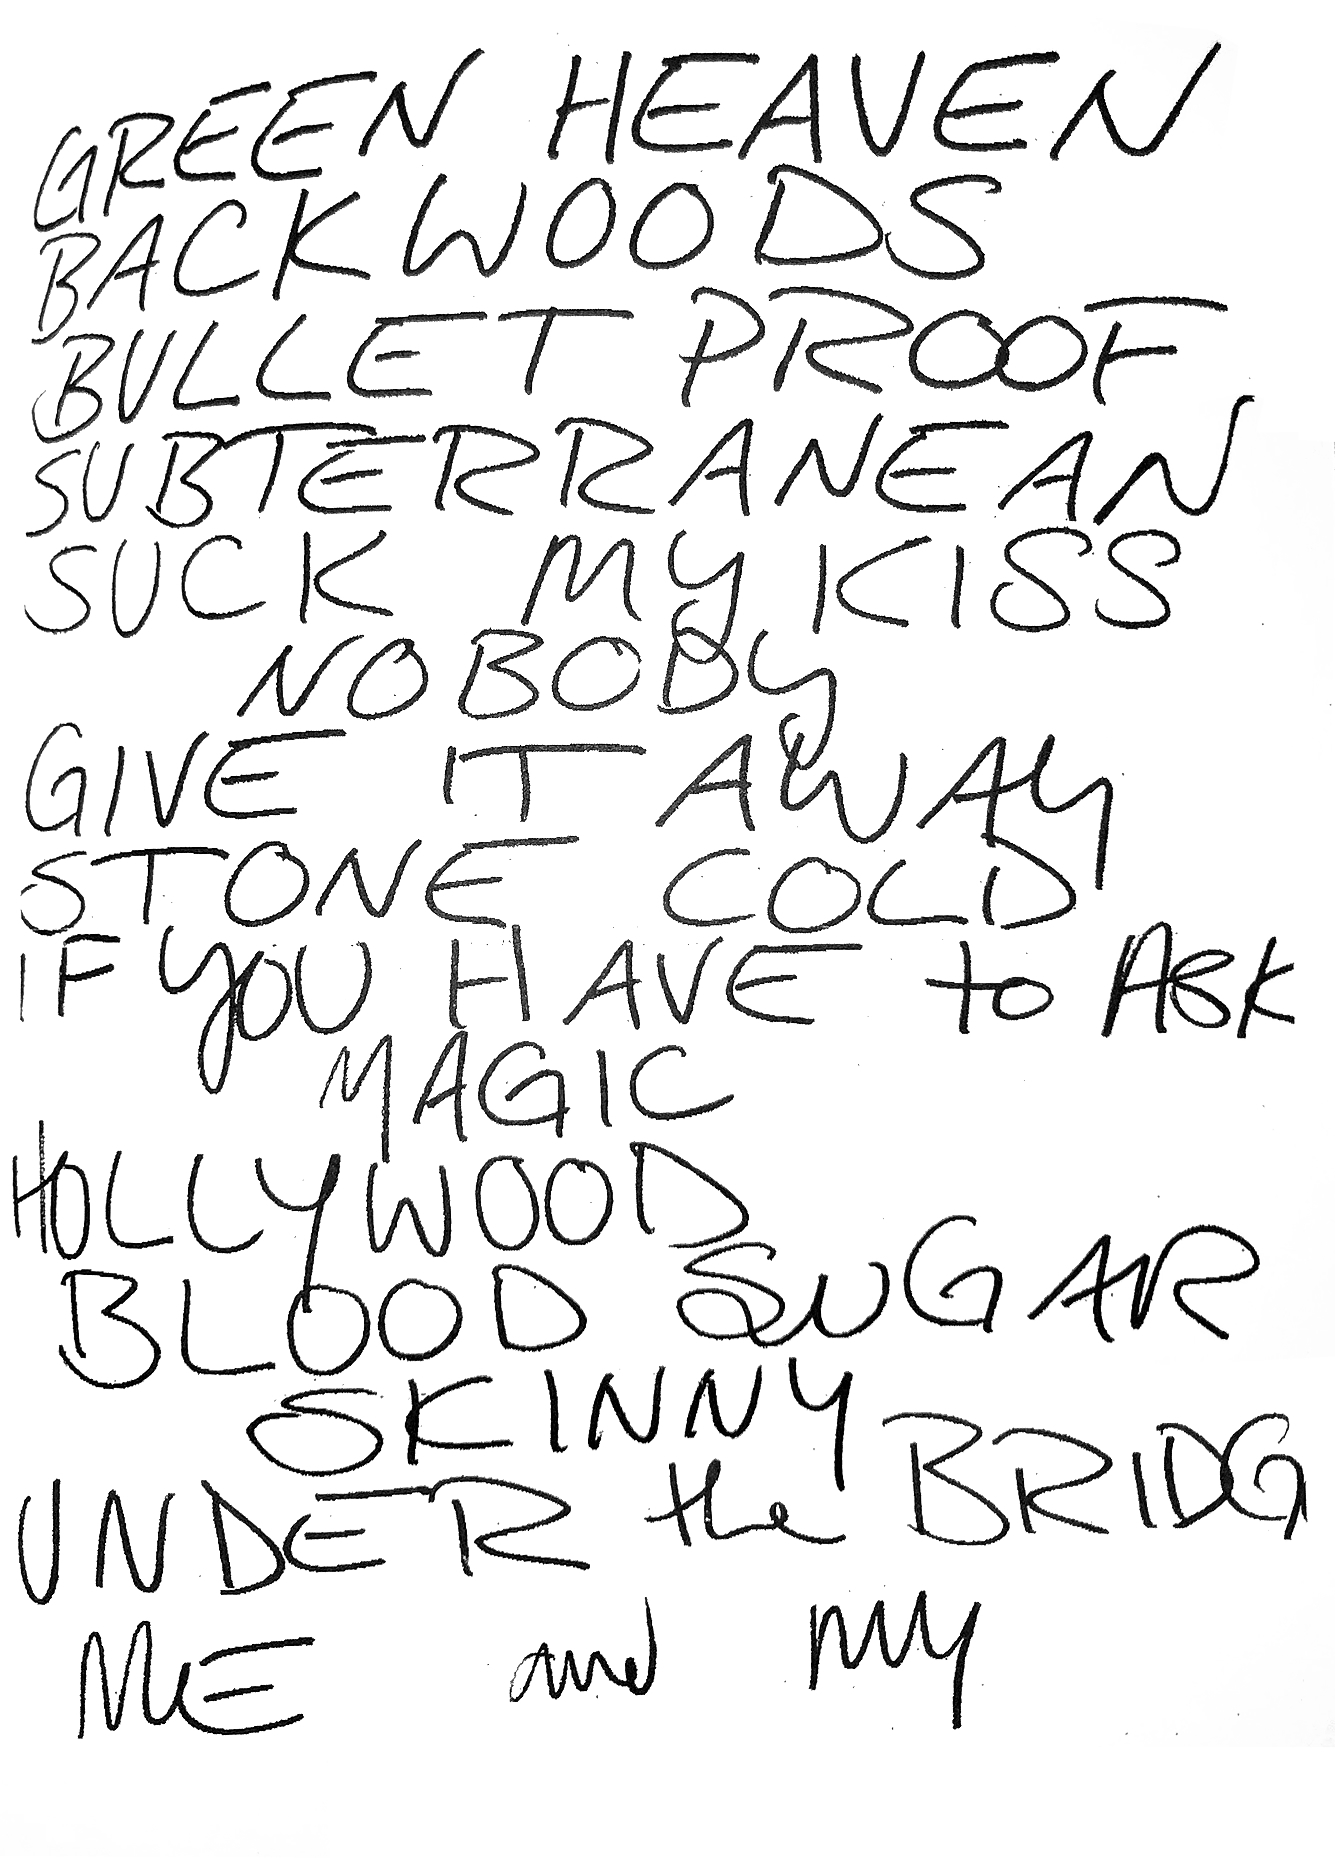 GREEN HEAVEN
BACKWOODS
BULLET PROOF
SUBTERRANEAN
SUCK MY KISS
NOBODY
GIVE IT AWAY
STONE COLD
IF YOU HAVE to ASK
MAGIC
HOLLYWOOD
BLOOD SUGAR
SKINNY
UNDER the BRIDG
ME and MY